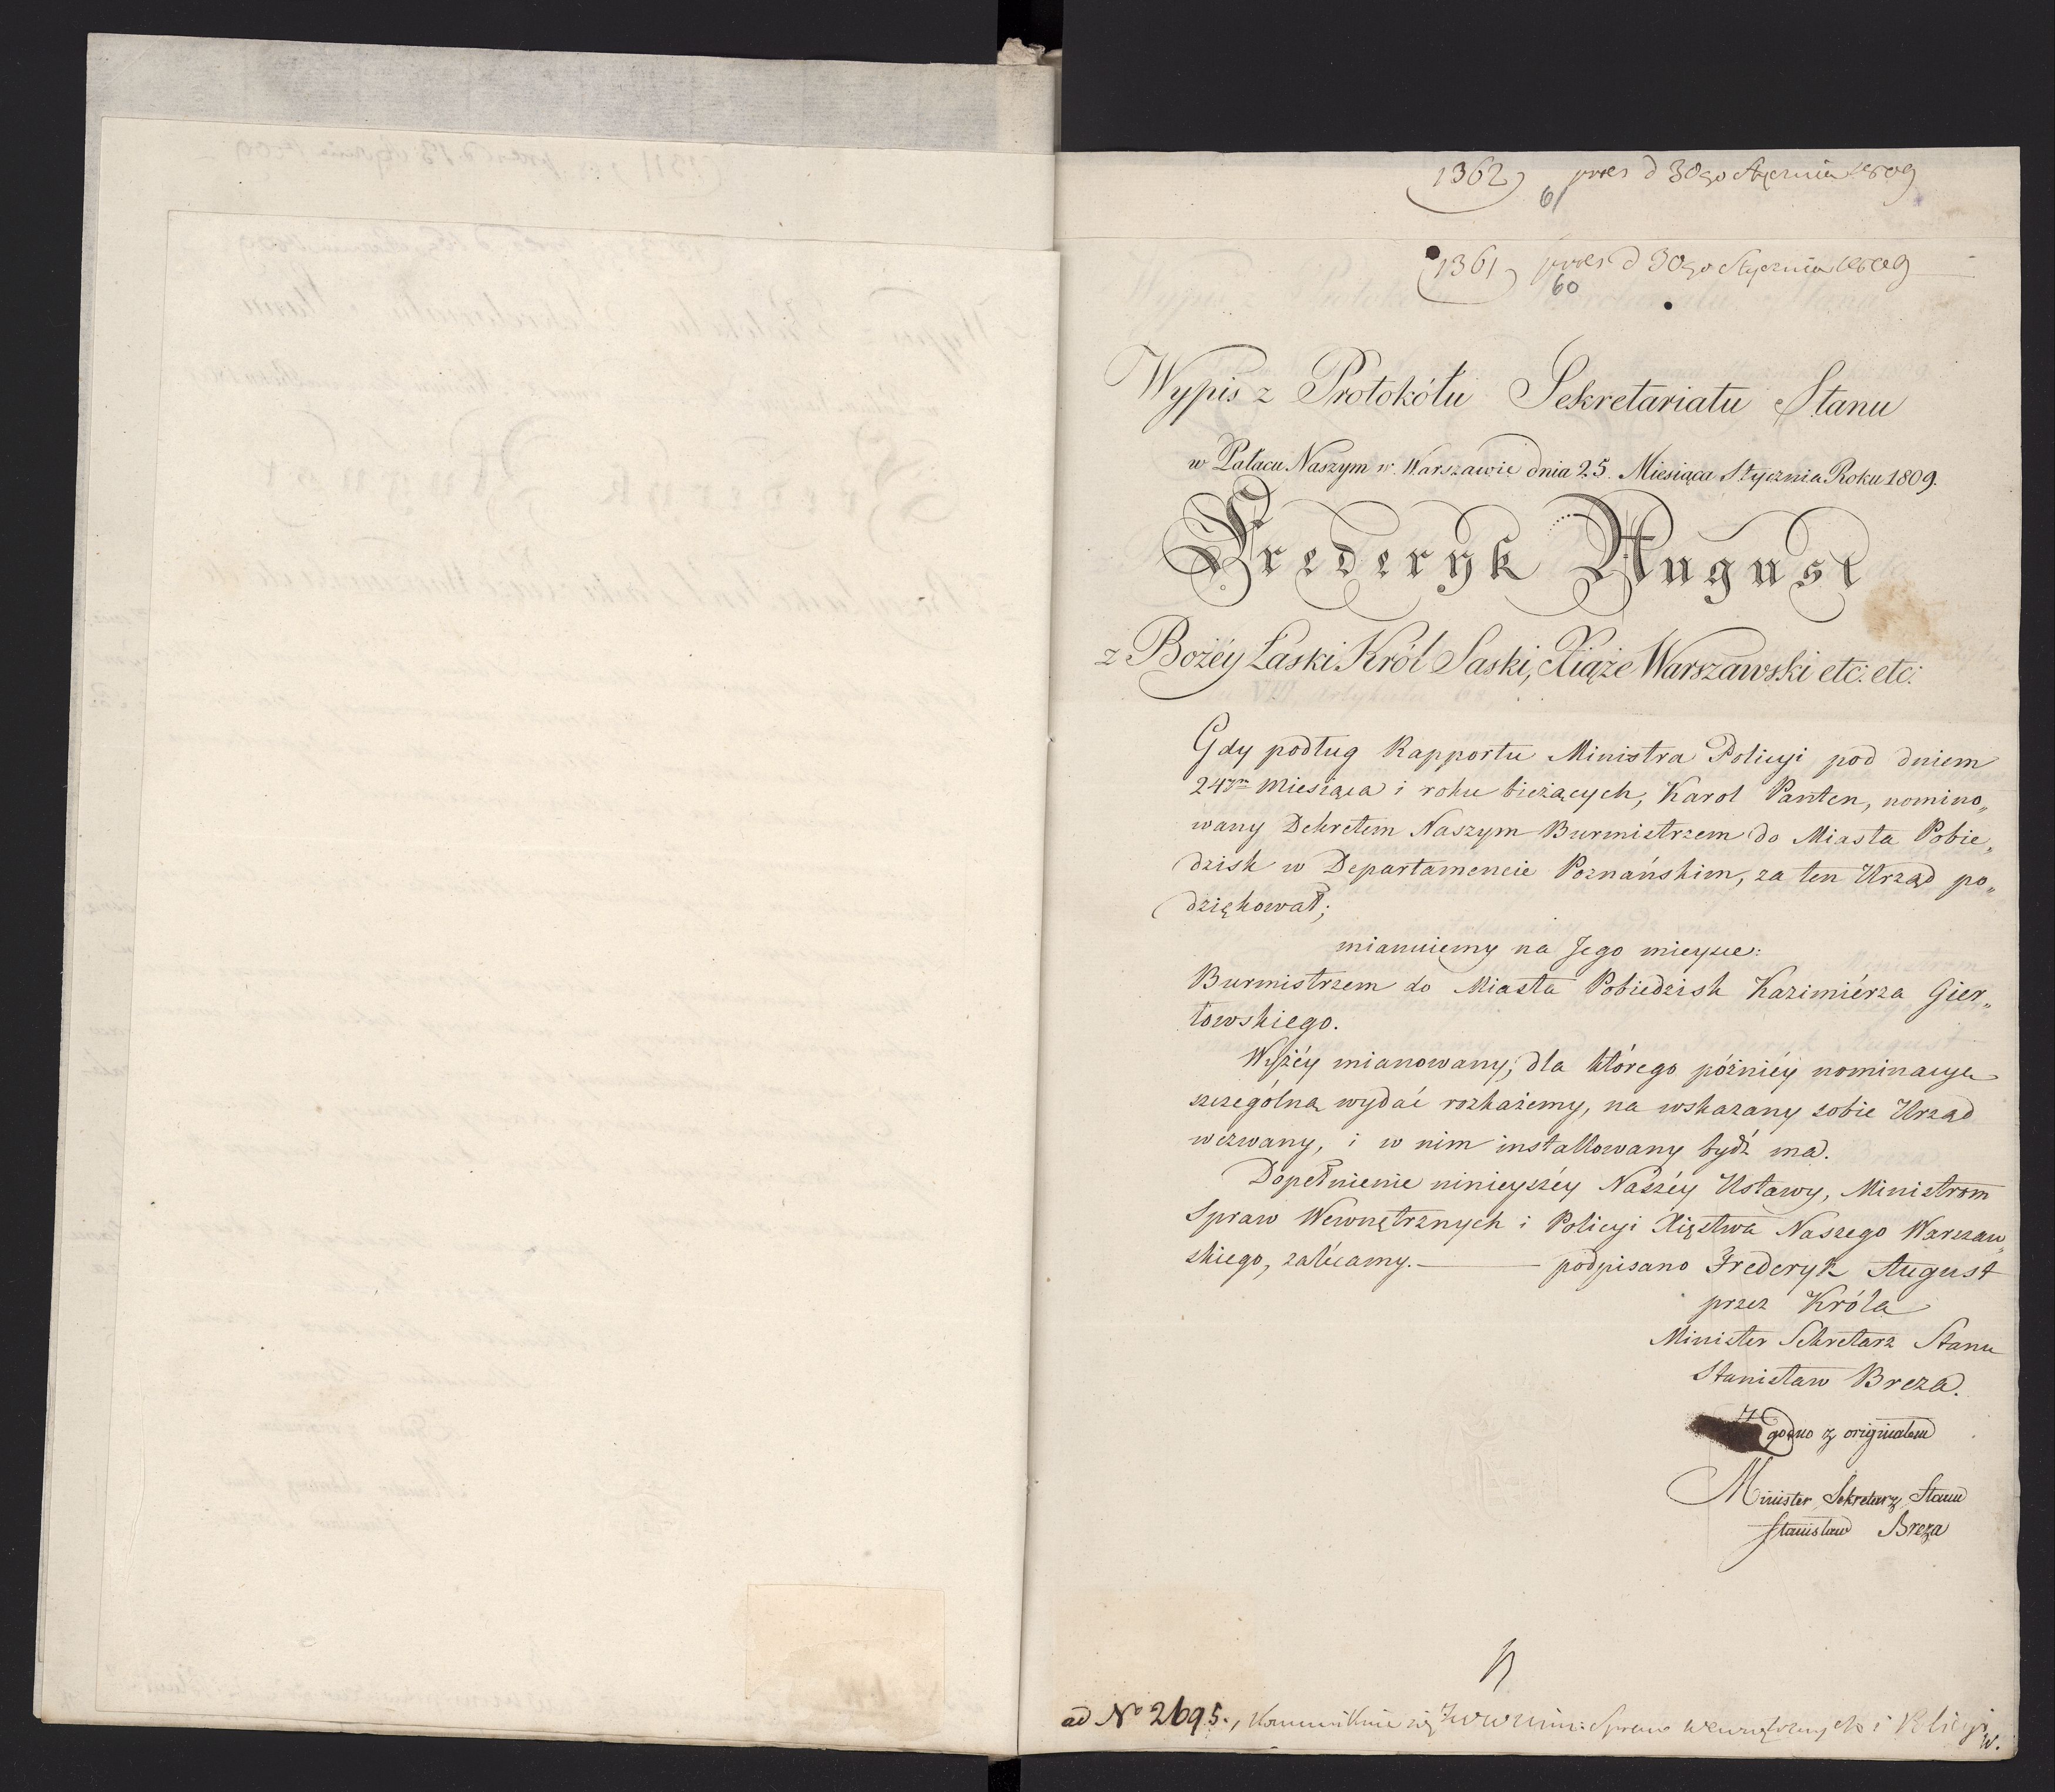 1362) pres d 30go Stycznia 1809
61
1361) pres d 30go Stycznia 1809
60
Wypis z Protokółu Sekretariatu Stanu
w Pałacu Naszym w Warszawie dnia 25. Miesiąca Stycznia Roku 1809.
Frederyk August
z Bożéy Łaski Król Saski, Xiąże Warszawski etc: etc:
Gdy podług Rapportu Ministra Policyi pod dniem
24ym Miesiąca i roku bieżących, Karol Panten, nomino„
wany Dekretem Naszym Burmistrzem do Miasta Pobie„
dzisk w Departamencie Poznańskim, za ten Urząd po„
dziękował;
mianuiemy na Jego mieysce:
Burmistrzem do Miasta Pobiedzisk Kazimiérza Gier„
łowskiego.
Wyżéy mianowany, dla którego późniéy nominacyę
szczególną wydać rozkażemy, na wskazany sobie Urząd
wezwany, i w nim installowany bydź ma.
Dopełnienie ninieyszéy Naszéy Ustawy, Ministrom
Spraw Wewnętrznych i Policyi Xięstwa Naszego Warszaw„
skiego, zalécamy. — podpisano Frederyk August
przez Króla
Minister Sekretarz Stanu
Stanisław Breza.
Zgodno z originałem
Minister Sekretarz Stanu
Stanisław Breza
ad No 2695., kommunikuie się Spraw wewnętrznych i Policyi
w.